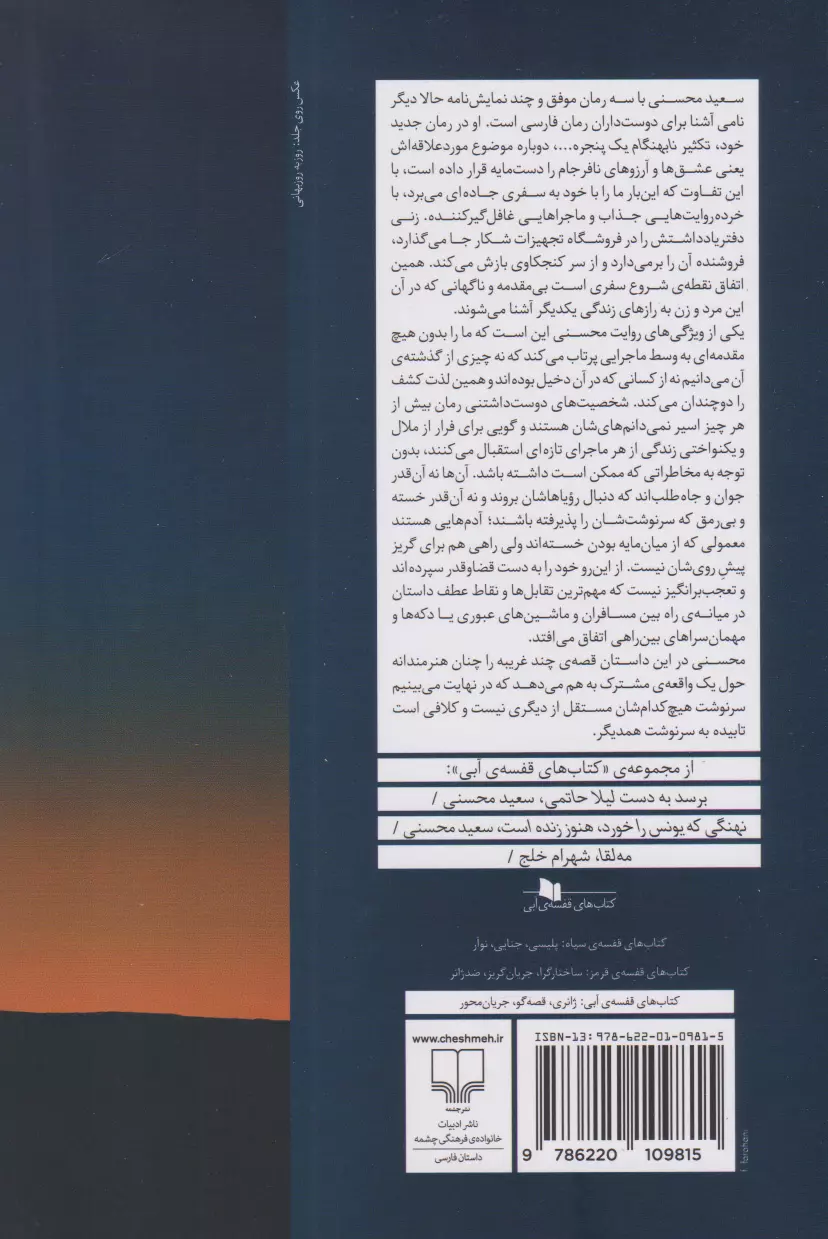 سعید محسنی با سه رمان موفق و چند نمایش‌نامه حالا دیگر
نامی آشنا برای دوست‌داران رمان فارسی است. او در رمان جدید
خود، تکثیر نابهنگام یک پنجره...، دوباره موضوع موردعلاقه‌اش
یعنی عشق‌ها و آرزوهای نافرجام را دست‌مایه قرار داده است، با
این تفاوت که این‌بار ما را با خود به سفری جاده‌ای می‌برد، با
خرده‌روایت‌هایی جذاب و ماجراهایی غافل‌گیرکننده. زنی
دفتر یادداشتش را در فروشگاه تجهیزات شکار جا می‌گذارد،
فروشنده آن را برمی‌دارد و از سر کنجکاوی بازش می‌کند. همین
اتفاق نقطه‌ی شروع سفری است بی‌مقدمه و ناگهانی که در آن
این مرد و زن به رازهای زندگی یکدیگر آشنا می‌شوند.
یکی از ویژگی‌های روایت محسنی این است که ما را بدون هیچ
مقدمه‌ای به وسط ماجرایی پرتاب می‌کند که نه چیزی از گذشته‌ی
آن می‌دانیم نه از کسانی که در آن دخیل بوده‌اند و همین لذت کشف
را دوچندان می‌کند. شخصیت‌های دوست‌داشتنی رمان بیش از
هر چیز اسیر نمی‌دانم‌های‌شان هستند و گویی برای فرار از ملال
و یکنواختی زندگی از هر ماجرای تازه‌ای استقبال می‌کنند، بدون
توجه به مخاطراتی که ممکن است داشته باشد. آن‌ها نه آن‌قدر
جوان و جاه‌طلب‌اند که دنبال رؤیاهاشان بروند و نه آن‌قدر خسته
و بی‌رمق که سرنوشت‌شان را پذیرفته باشند؛ آدم‌هایی هستند
معمولی که از میان‌مایه بودن خسته‌اند ولی راهی هم برای گریز
پیشِ روی‌شان نیست. از این‌رو خود را به دست قضاوقدر سپرده‌اند
و تعجب‌برانگیز نیست که مهم‌ترین تقابل‌ها و نقاط عطف داستان
در میانه‌ی راه بین مسافران و ماشین‌های عبوری یا دکه‌ها و
مهمان‌سراهای بین‌راهی اتفاق می‌افتد.
محسنی در این داستان قصه‌ی چند غریبه را چنان هنرمندانه
حول یک واقعه‌ی مشترک به هم می‌دهد که در نهایت می‌بینیم
سرنوشت هیچ‌کدام‌شان مستقل از دیگری نیست و کلافی است
تابیده به سرنوشت همدیگر.
از مجموعه‌ی «کتاب‌های قفسه‌ی آبی»:
برسد به دست لیلا حاتمی، سعید محسنی /
نهنگی که یونس را خورد، هنوز زنده است، سعید محسنی /
مه‌لقا، شهرام خلج /
کتاب‌های قفسه‌ی آبی
کتاب‌های قفسه‌ی سیاه: پلیسی، جنایی، نوآر
کتاب‌های قفسه‌ی قرمز: ساختارگرا، جریان‌گریز، ضدژانر
کتاب‌های قفسه‌ی آبی: ژانری، قصه‌گو، جریان‌محور
ISBN-13: 978-622-01-0981-5
9 786220 109815
www.cheshmeh.ir
نشرچشمه
ناشر ادبیات
خانواده‌ی فرهنگی چشمه
داستان فارسی
عکس روی جلد: روزبه روزبهانی
f. farahani